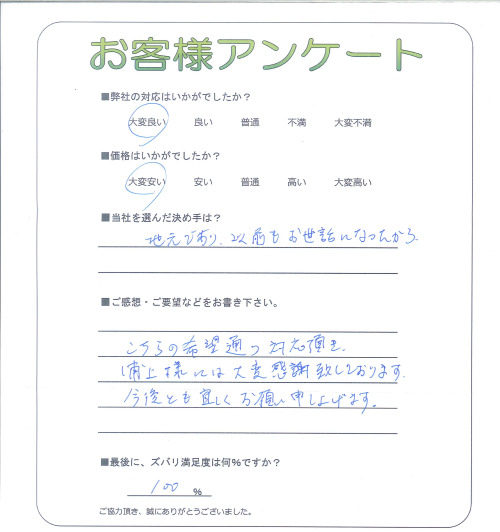 お客様アンケート
■弊社の対応はいかがでしたか？
大変良い 良い 普通 不満 大変不満
■価格はいかがでしたか？
大変安い 安い 普通 高い 大変高い
■当社を選んだ決め手は？
地元であり、以前もお世話になったから。
■ご感想・ご要望などをお書き下さい。
こちらの希望通り対応頂き、
浦上様には大変感謝致しております。
今後とも宜しくお願い申し上げます。
■最後に、ズバリ満足度は何%ですか？
100 %
ご協力頂き、誠にありがとうございました。